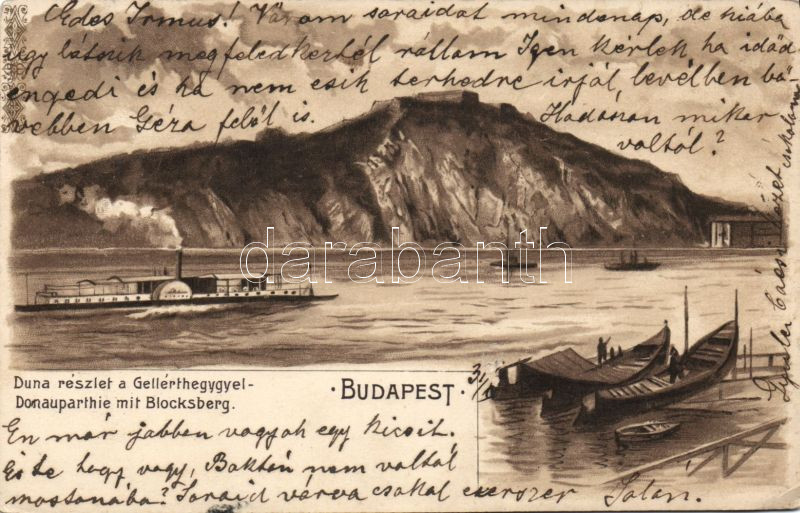 Édes Irmus! Várom soraidat mindennap, de hiába
úgy látszik megfeledkeztél rállam Igen kérlek ha időd
engedi és ha nem esik terhedre irjál, levélben bő-
vebben Géza felől is. Hadaszon mikor
voltál?
darabanth
Duna részlet a Gellérthegygyel-
Donauparthie mit Blocksberg.
· BUDAPEST ·
3/
Én már jobban vagyok egy kicsit.
És te hogy vagy, Baktán nem voltál
mostanába? Soraid várva csókol ezerszer Ilolán.
kezét csókolom